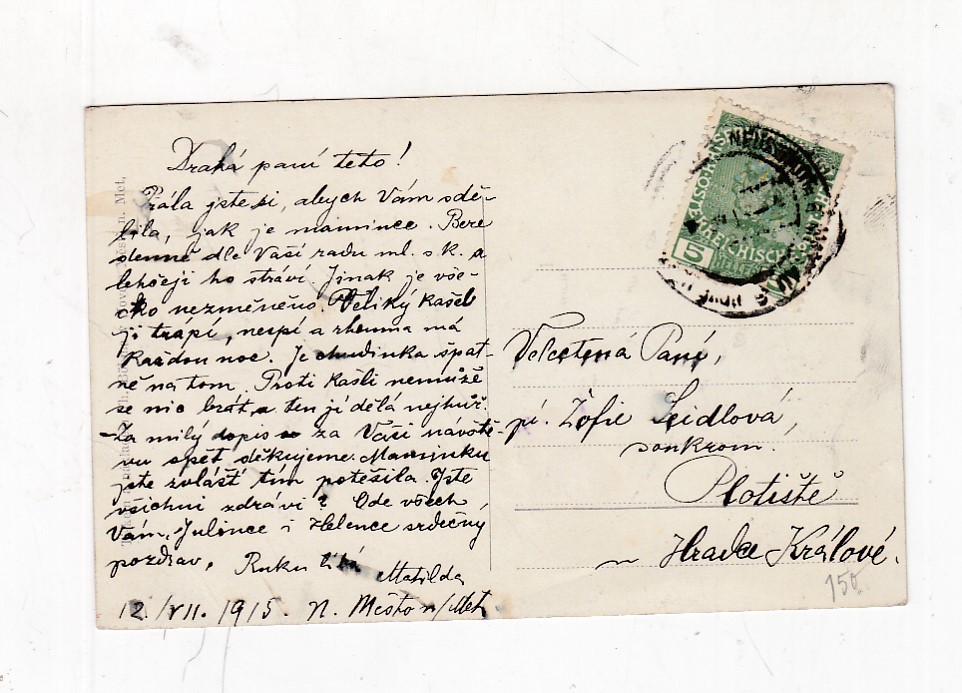 Drahá paní teto!
Přála jste si, abych Vám sdě-
lila, jak je mamince. Bere
denně dle Vaší radu ml. s k. a
lehčeji ho stráví. Jinak je vše-
cko nezměněno. Veliký kašel
ji trápí, nespí a rheuma má
každou noc. Je chudinka špat-
ně na tom. Proti kašli nemůže
se nic brát, a ten jí dělá nejhůř.
Za milý dopis za Vaši návště-
vu opět děkujeme. Maminku
jste zvlášť tím potěšila. Jste
všichni zdrávi? Ode všech
Vám, Julince i Helence srdečný
pozdrav, Ruku líbá Matilda
12./VII. 1915. N. Město n/Met
5
Velectěná Paní,
pí. Žofie Seidlová,
soukrom.
Plotiště
Hradce Králové.
150
n. Met.